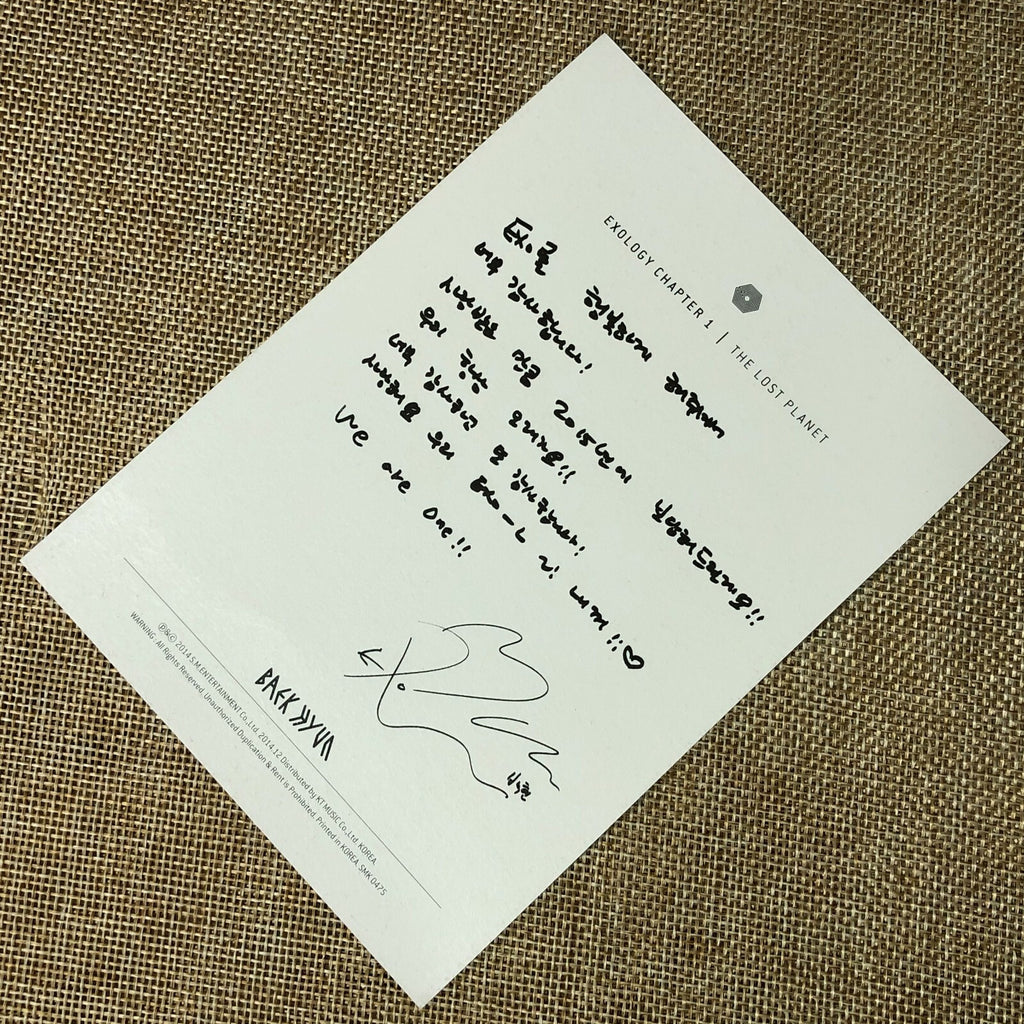 EXOLOGY CHAPTER 1 | THE LOST PLANET
EXO.엘 행복하게 해줘서
너무 감사합니다!
사랑받은 만큼 2015년에 보답해드릴게요!!
우리 항상 오래가요!!
너무 감사하고 또 감사합니다!
사랑해요 우리 EXO-L 리내꺼!!♡
We are one!!
백현
BAEK HYUN
℗&© 2014 S.M.ENTERTAINMENT Co.,Ltd. 2014.12 Distributed by KT MUSIC Co.,Ltd. KOREA.
WARNING : All Rights Reserved. Unauthorized Duplication & Rent is Prohibited. Printed in KOREA. SMK 0475